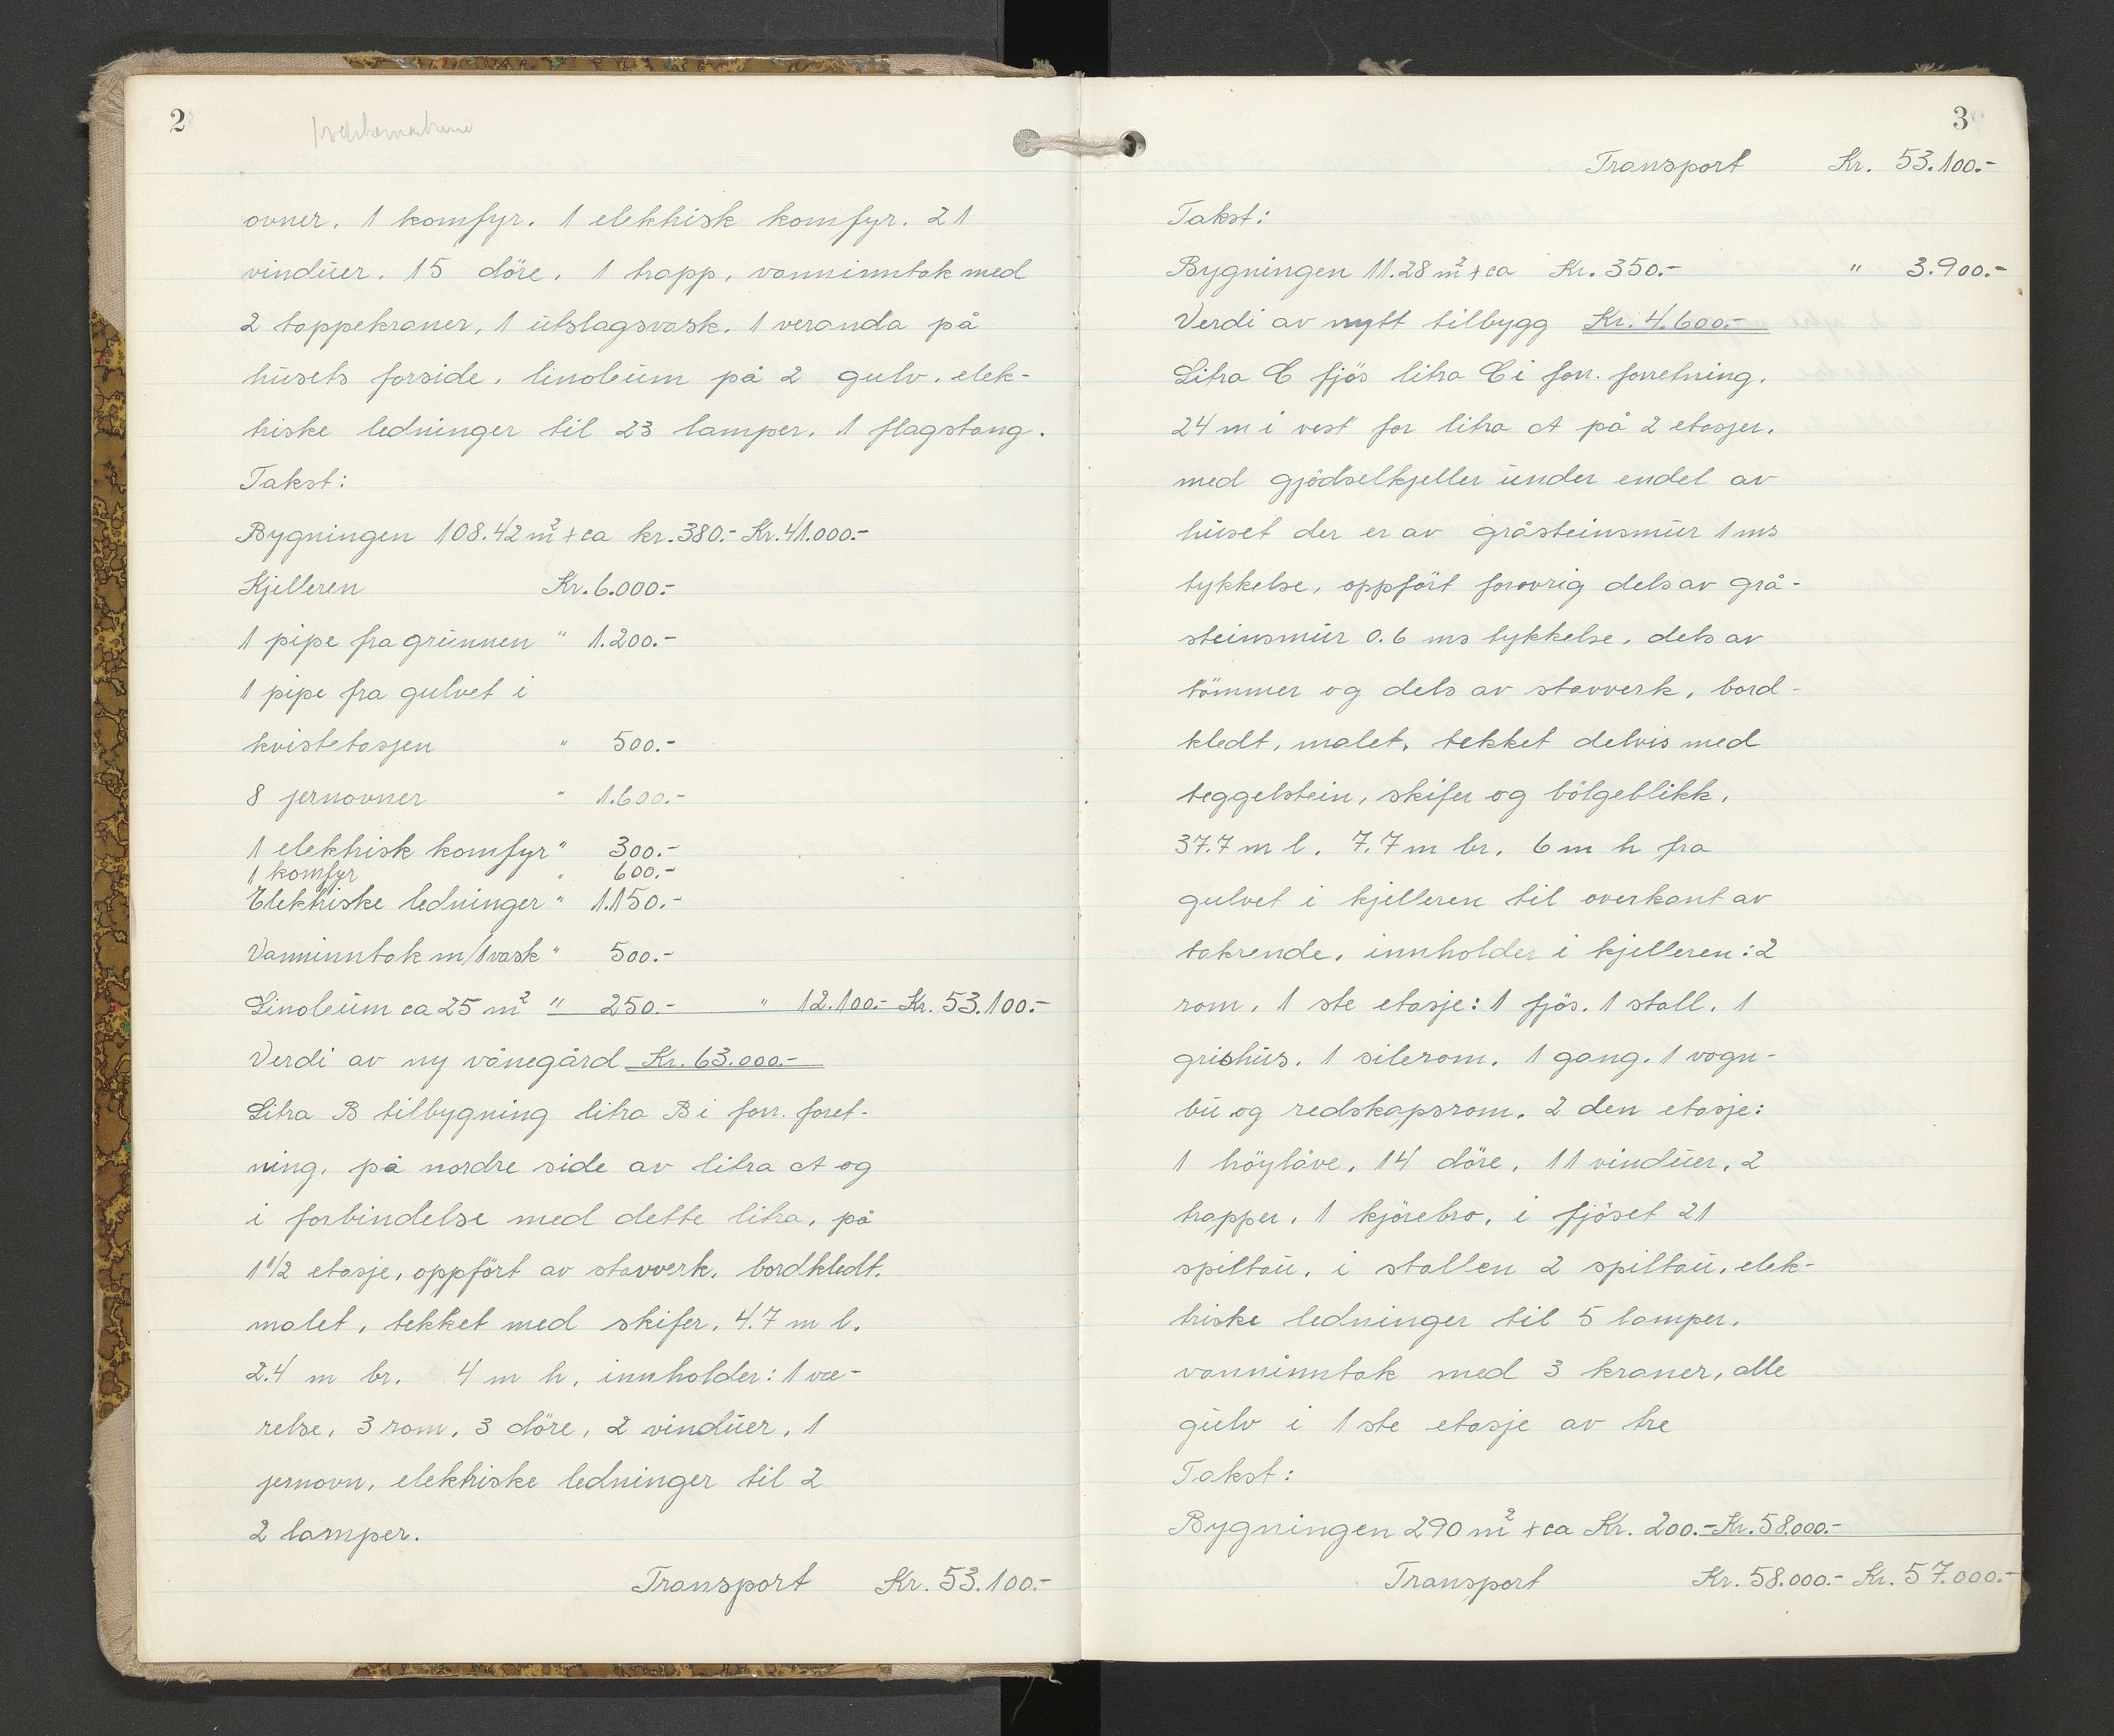 2
ovner. 1 komfyr. 1 elektrisk komfyr. 21
vindŭer. 15 döre. 1 trapp, vanninntak med
2 tappekraner, 1 ŭtslagsvask. 1 veranda på
hŭsets forside. linoleŭm på 2 gulv. elek-
triske ledninger til 23 lamper. 1 flagstang.
Takst:
Bygningen 108.42 m² + ca kr. 380.- Kr. 41.000.-
Kjelleren Kr. 6.000.-
1 pipe fra grŭnnen " 1.200.-
1 pipe fra gulvet i
kvistetasjen " 500.-
8 jernovner " 1.600.-
1 elektrisk komfyr " 300.-
1 komfyr " 600.-
Elektriske ledninger " 1.150.-
Vanninntak m/1 vask " 500.-
Linoleŭm ca 25 m² " 250.- " 12.100.- Kr. 53.100.-
Verdi av ny vånegård Kr. 63.000.-
Litra B tilbygning litra B i forr. foret-
ning. på nordre side av litra A og
i forbindelse med dette litra, på
1 1/2 etasje, oppfört av stavverk. bordkledt.
malet, tekket med skifer. 4.7 m l.
2.4 m br. 4 m h. innholder: 1 væ-
relse. 3 rom. 3 döre, 2 vindŭer, 1
jernovn, elektriske ledninger til 2
2 lamper.
Transport Kr. 53.100.-
3
Transport Kr. 53.100.-
Takst:
Bygningen 11.28 m² + ca Kr. 350.- " 3.900.-
Verdi av nytt tilbygg Kr. 4.600.-
Litra C fjös litra C i forr. forretning.
24 m i vest for litra A på 2 etasjer.
med gjödselkjeller ŭnder endel av
hŭset der er av gråsteinsmŭr 1 ms
tykkelse, oppfört forovrig dels av grå-
steinsmŭr 0.6 ms tykkelse. dels av
tömmer og dels av stavverk, bord-
kledt, malet. tekket delvis med
teggelstein, skifer og bölgeblikk.
37.7 m l. 7.7 m br. 6 m h fra
gulvet i kjelleren til overkant av
takrende. innholder i kjelleren: 2
rom. 1 ste etasje: 1 fjös. 1 stall. 1
grishŭs. 1 silerom. 1 gang. 1 vogn-
bŭ og redskapsrom. 2 den etasje:
1 höylåve. 14 döre. 11 vindŭer. 2
trapper. 1 kjörebro. i fjöset 21
spiltaŭ. i stallen 2 spiltaŭ. elek-
triske ledninger til 5 lamper.
vanninntak med 3 kraner, alle
gŭlv i 1 ste etasje av tre
Takst:
Bygningen 290 m² + ca Kr. 200.- Kr. 58.000.-
Transport Kr. 58.000.- Kr. 57.000.-